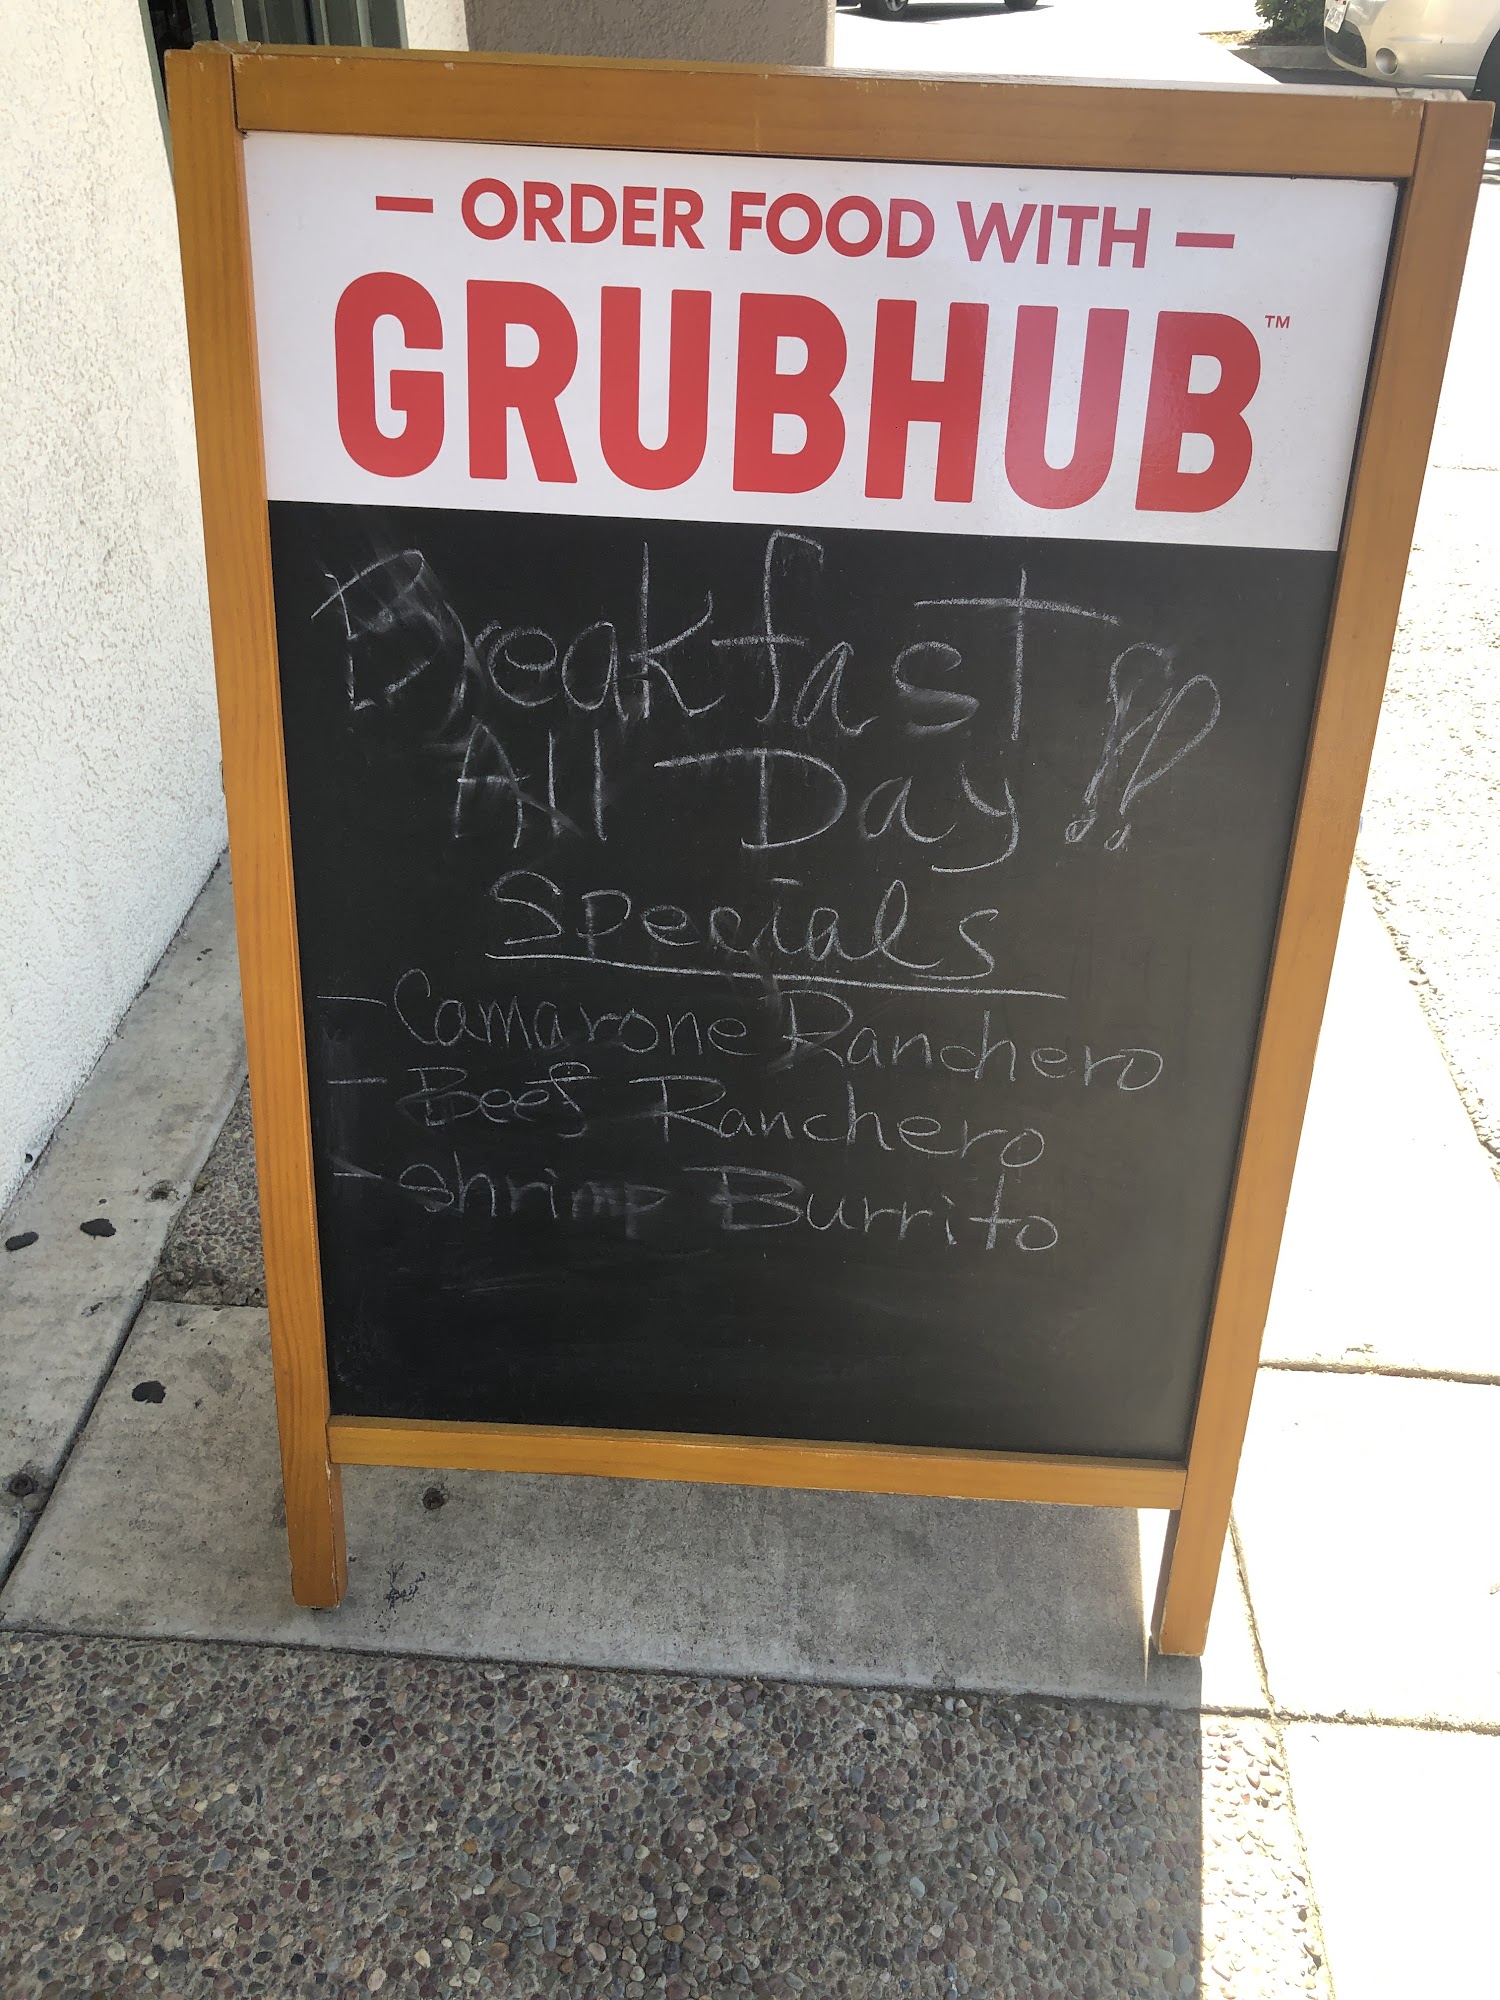 — ORDER FOOD WITH —
GRUBHUB™
Breakfast
All Day!!
Specials
- Camarone Ranchero
- Beef Ranchero
- shrimp Burrito